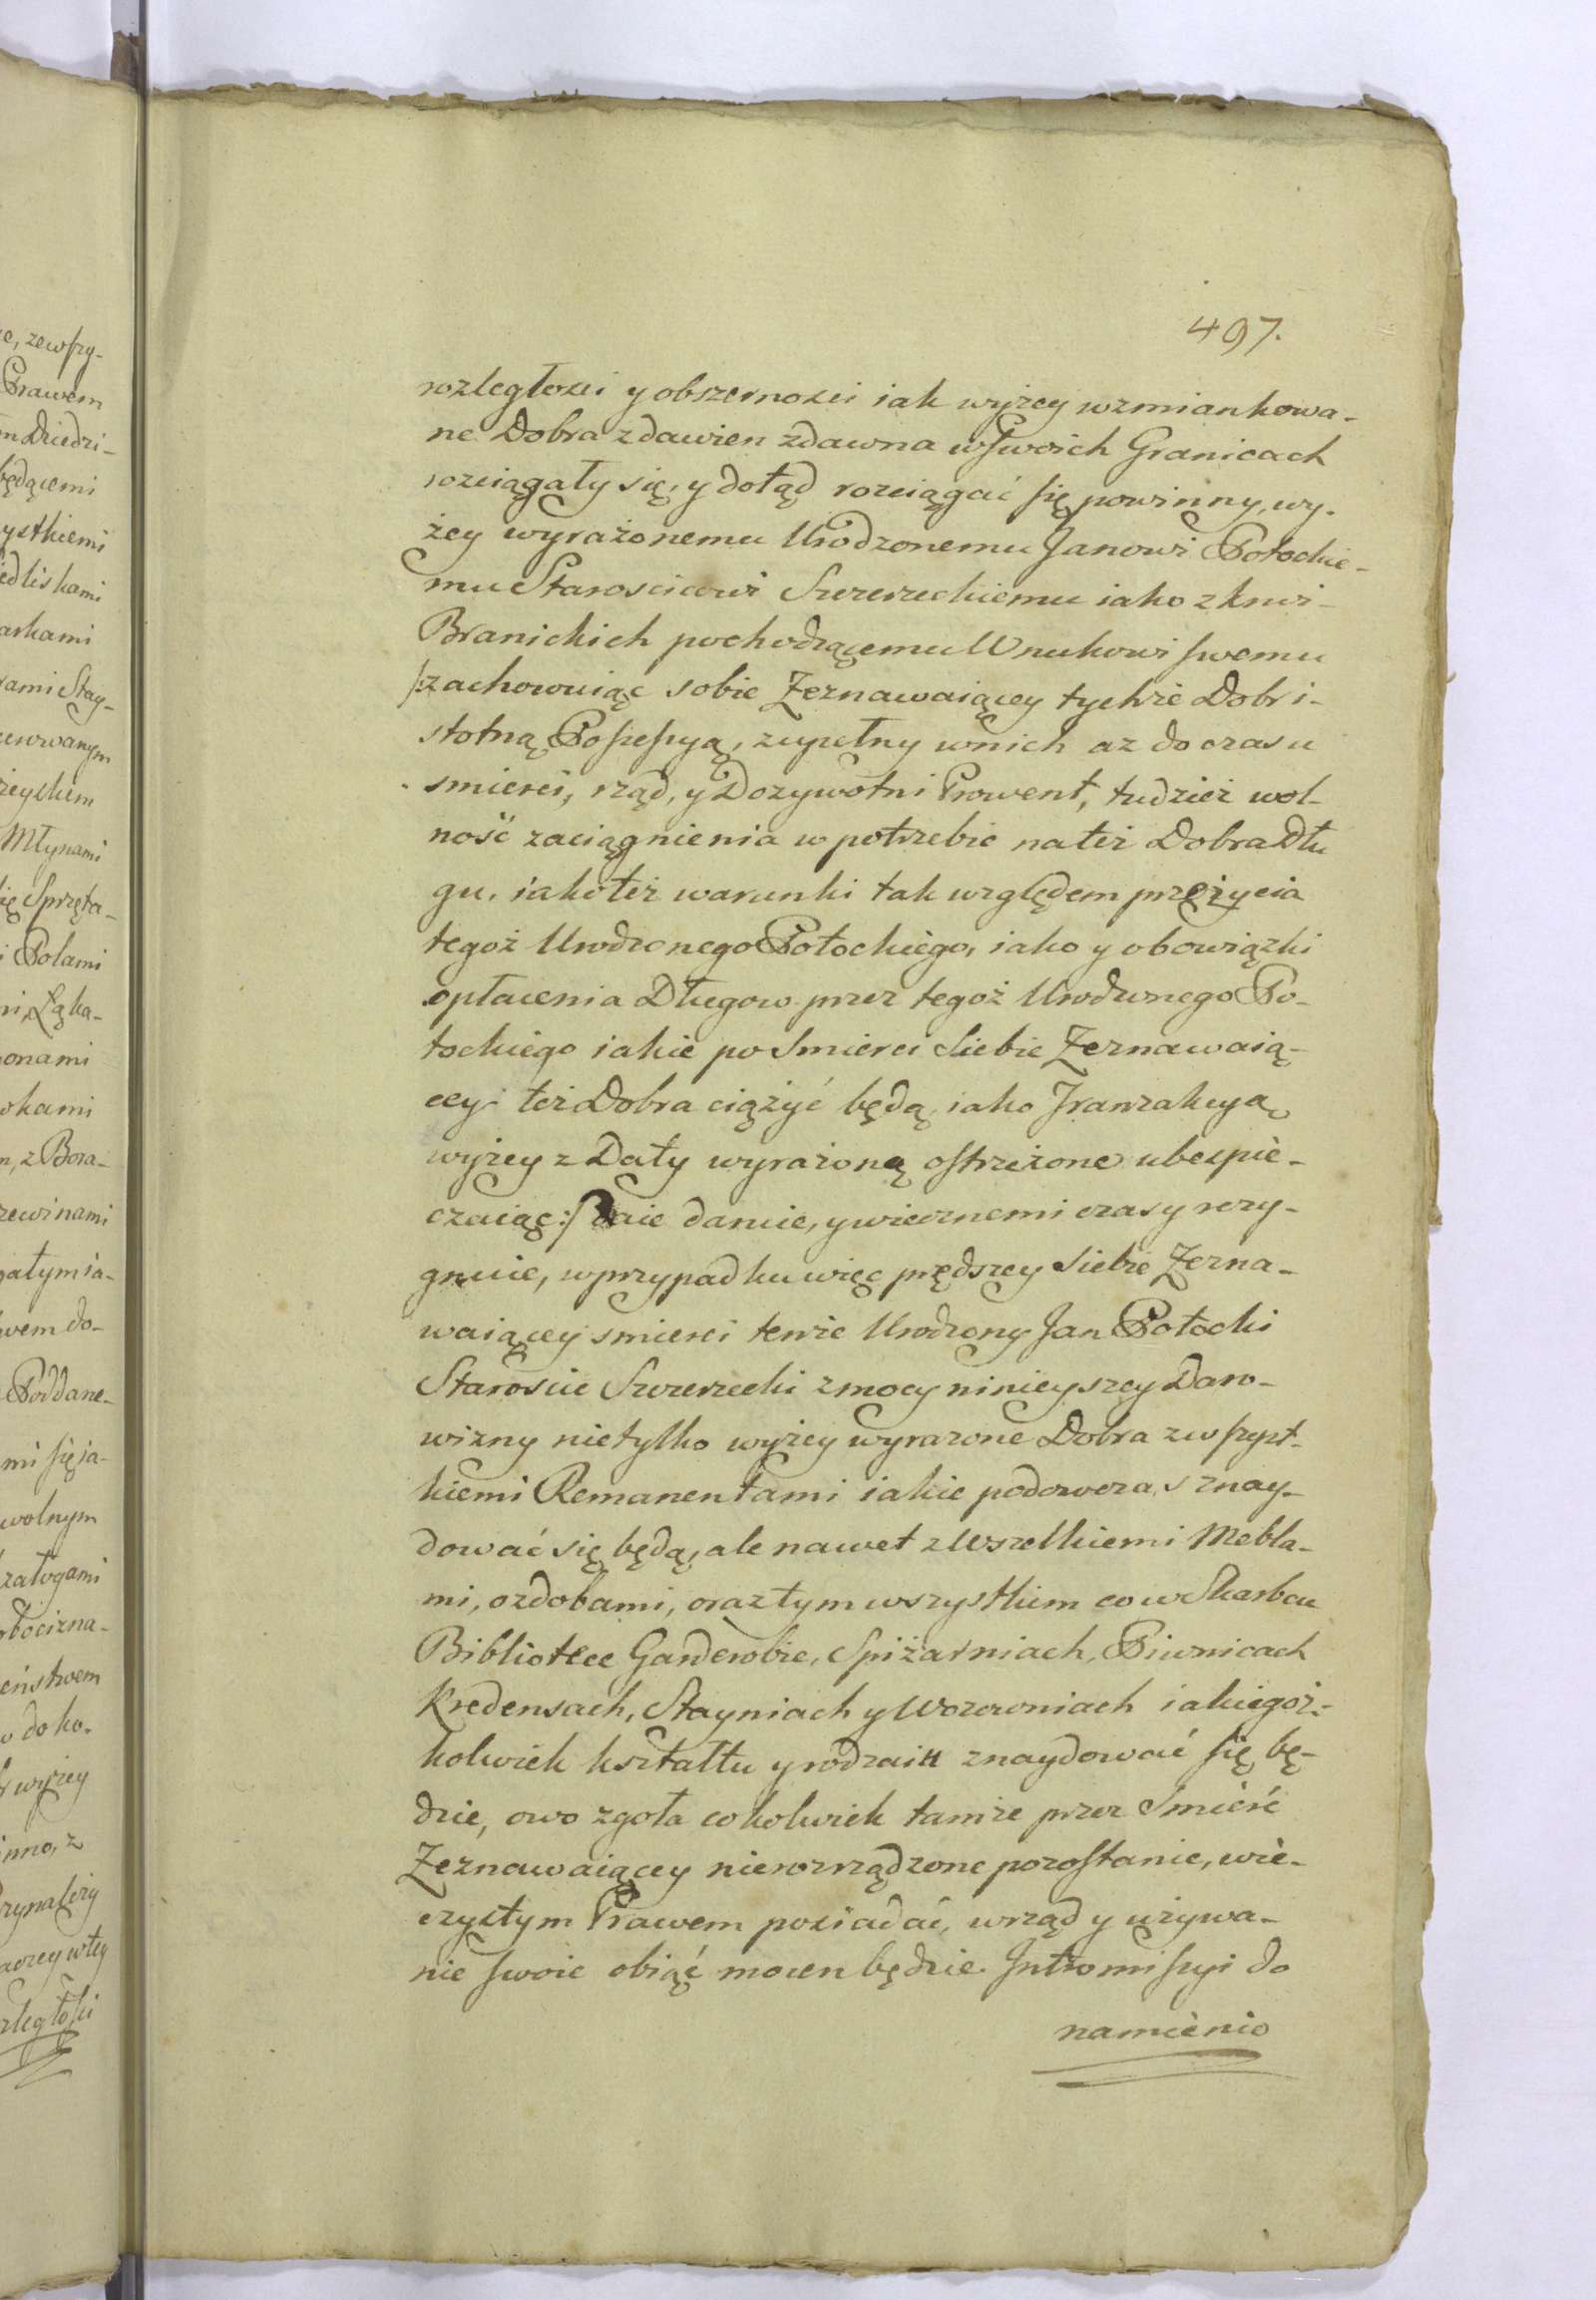 497.
rozległości y obszerności iak wyżey wzmiankowa-
ne Dobra zdawien zdawna w swoich Granicach
rozciągały się, y dotąd rozciągać się powinny, wy-
żey wyrażonemu Urodzonemu Janowi Potockie-
mu Staroscicowi Szczerzeckiemu iako z krwi-
Branickich pochodzącemu Wnukowi swemu
/:zachowuiąc sobie Zeznawaiącey tychże Dobr i-
stotną Possessyą, zupełny w nich az do czasu
smierci, rząd, y Dozywotni Prowent, tudzież wol-
ność zaciągnienia w potrzebie na też Dobra Dłu
gu, iakoteż warunki tak względem przeżycia
tegoż Urodzonego Potockiego, iako y obowiązki
opłacenia Długow przez tegoż Urodzonego Po-
tockiego iakie po Smierci Siebie Zeznawaią-
cey też Dobra ciążyć będą, iako Tranzakcyą
wyżey z Daty wyrażoną ostrzeżone ubezpie-
czaiąc:/ daie daruie, y wiecznemi czasy rezy-
gnuie, w przypadku więc prędszey Siebie Zezna-
waiącey smierci tenże Urodzony Jan Potocki
Staroscic Szczerzecki z mocy ninieyszey Daro-
wizny nietylko wyżey wyrazone Dobra z wszyst-
kiemi Remanentami iakie podowczas znay-
dować się będą, ale nawet z Wszelkiemi Mebla-
mi, ozdobami, oraz tym wszystkim co w Skarbcu
Bibliotece Garderobie, Spiżarniach, Piwnicach
Kredensach, Stayniach y Wozowniach iakiegoż-
kolwiek kształtu y rodzaiu znaydować się bę-
dzie, owo zgoła cokolwiek tamże przez Smierć
Zeznawaiącey nierozrządzone pozostanie, wie-
czystym Prawem posiadać, w rząd y używa-
nie swoie obiąć mocen będzie. Intromissyi do
namienio